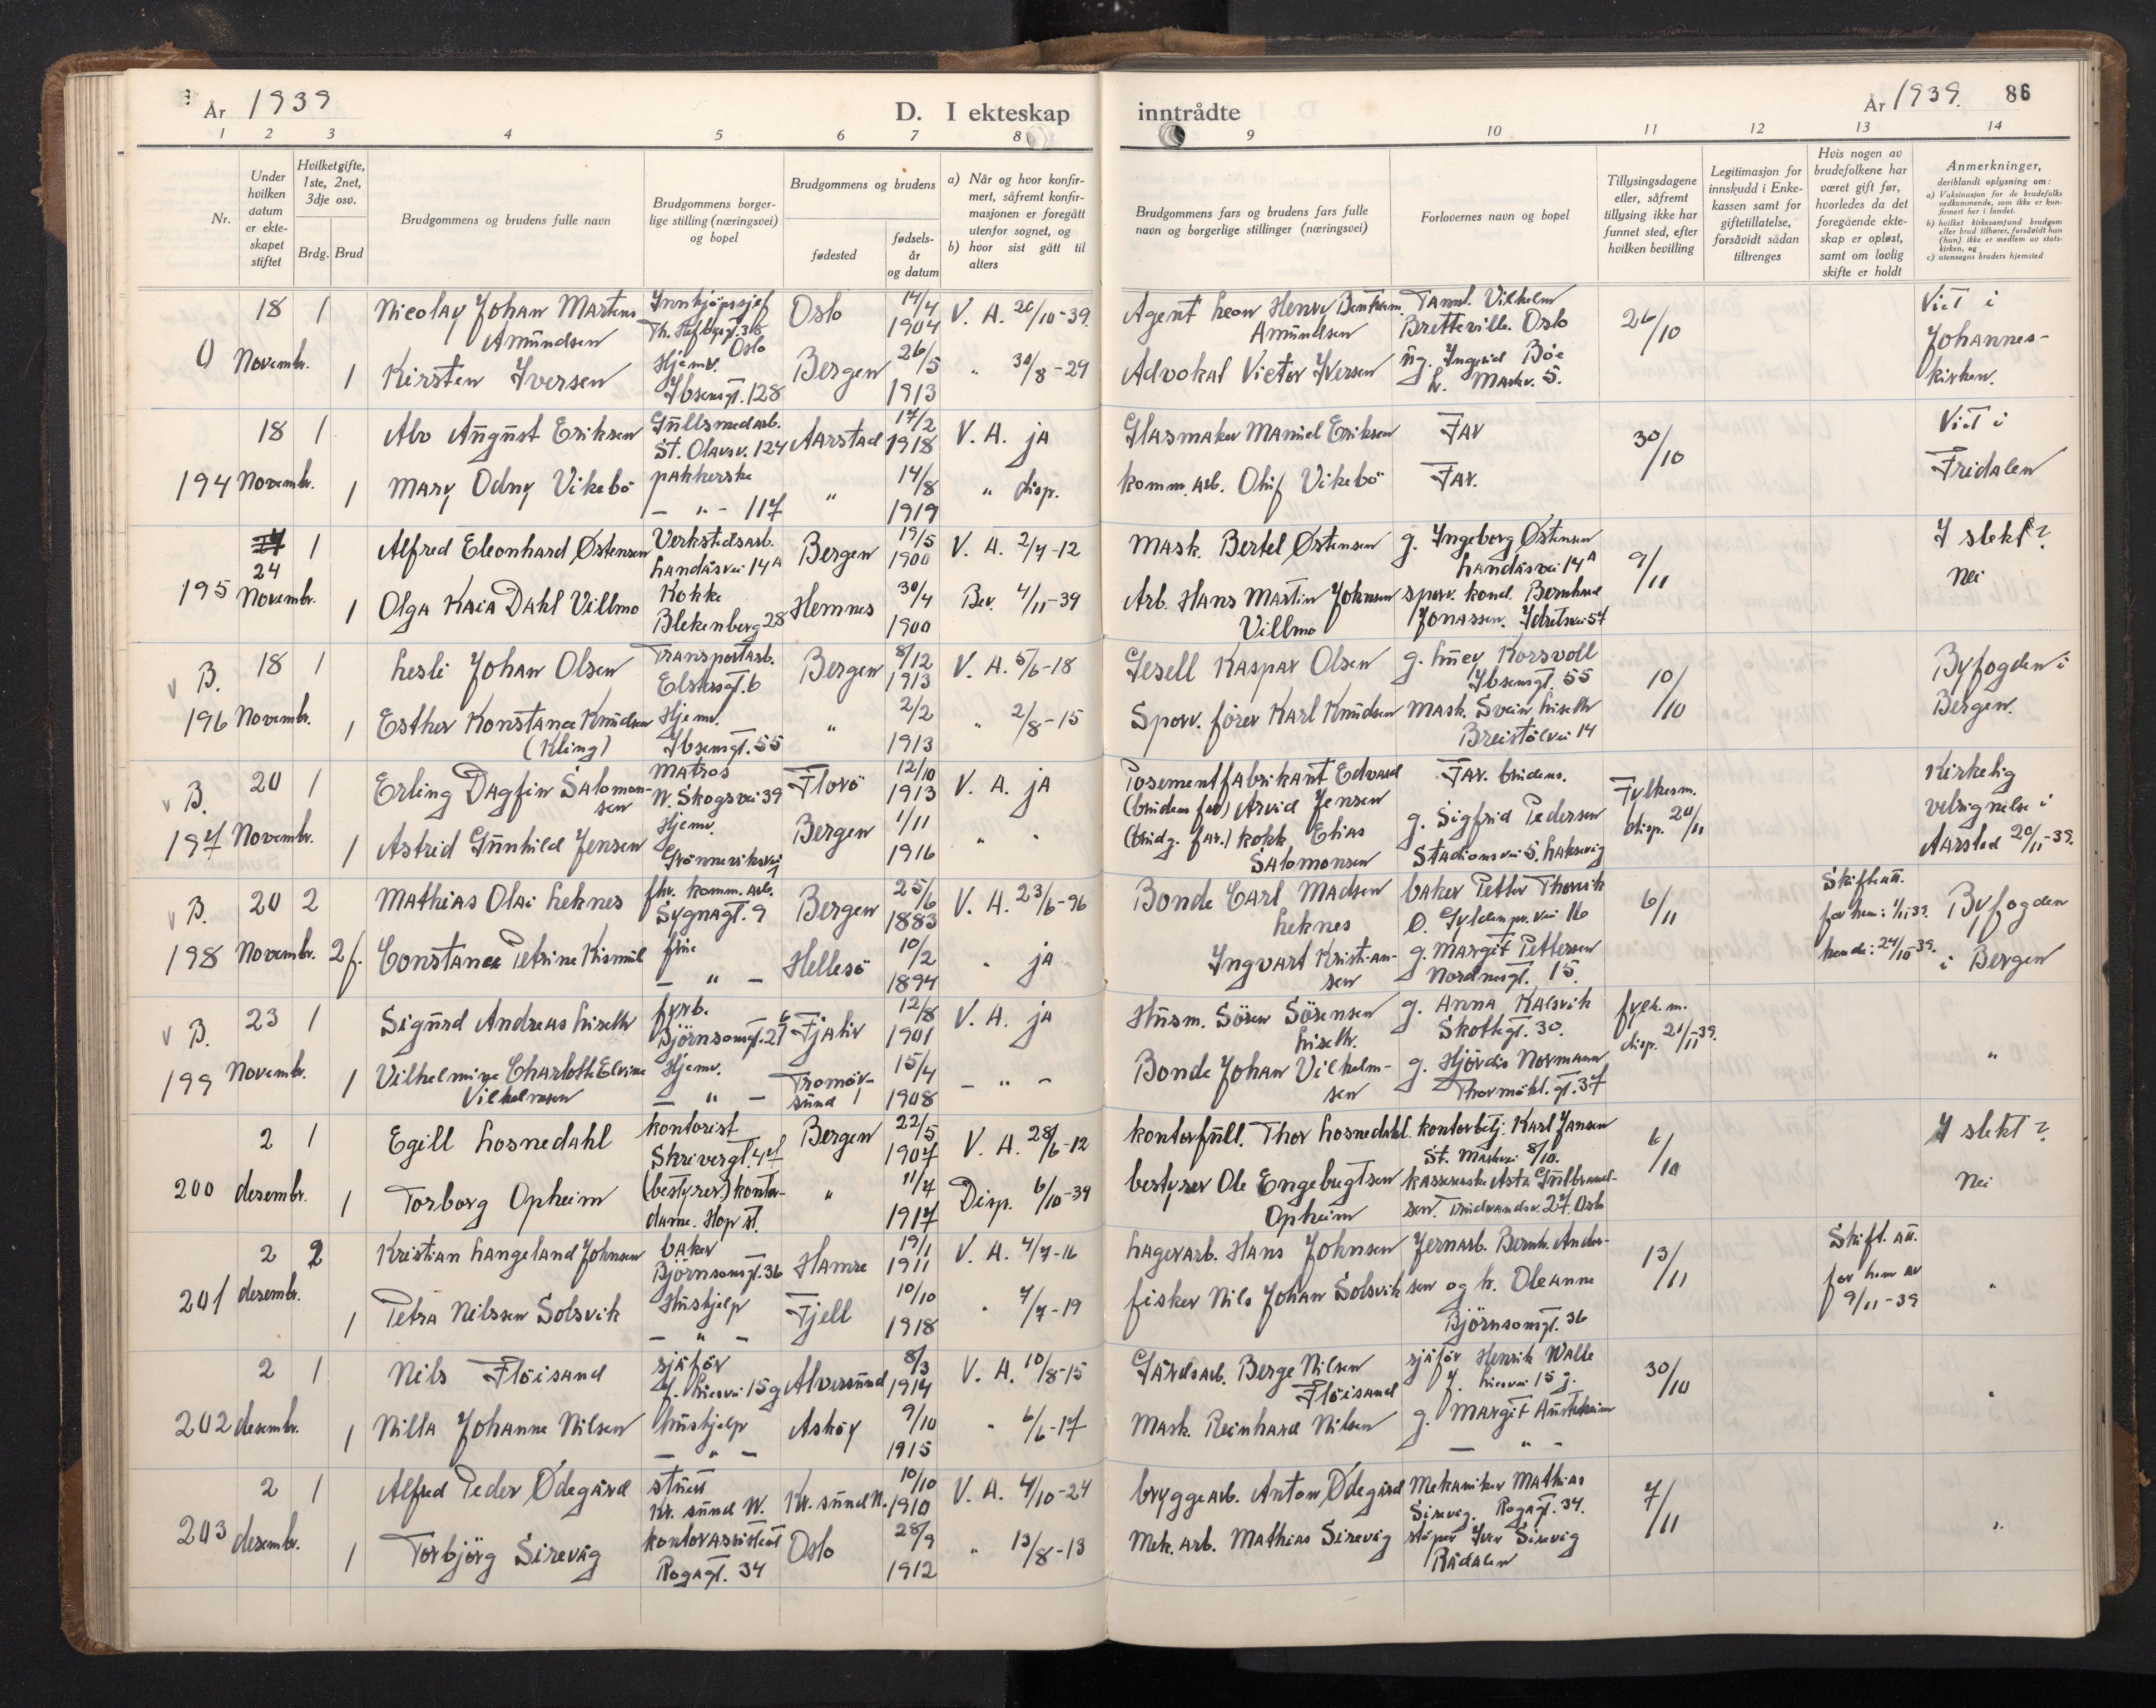 År 1939
D. I ekteskap
inntrådte
År 1939. 86
1 2 3 4 5 6 7 8 9 10 11 12 13 14
Nr.
Under hvilken datum er ekteskapet stiftet
Hvilket gifte, 1ste, 2net, 3dje osv.
Brdg. Brud
Brudgommens og brudens fulle navn
Brudgommens borgerlige stilling (næringsvei) og bopel
Brudgommens og brudens
fødested
fødselsår og datum
a) Når og hvor konfirmert, såfremt konfirmasjonen er foregått utenfor sognet, og
b) hvor sist gått til alters
Brudgommens fars og brudens fars fulle navn og borgerlige stillinger (næringsvei)
Forlovernes navn og bopel
Tillysingsdagene eller, såfremt tillysing ikke har funnet sted, efter hvilken bevilling
Legitimasjon for innskudd i Enkekassen samt for giftetillatelse, forsåvidt sådan tiltrenges
Hvis nogen av brudefolkene har været gift før, hvorledes da det foregående ekteskap er opløst, samt om lovlig skifte er holdt
Anmerkninger, deriblandt oplysning om:
a) Vaksinasjon for de brudefolks vedkommende, som ikke er konfirmert her i landet.
b) hvilket kirkesamfund brudgom eller brud tilhører, forsåvidt han (hun) ikke er medlem av statskirken, og
c) utensogns bruders hjemsted
18 1 Nicolay Johan Martens Innkjöpssjef Oslo 14/4 V. A. 20/10-39. Agent Leon Henry Bentram Tannl. Vilhelm 26/10 Viet i
Amundsen Oslo 1904 Amundsen Bretteville. Oslo Johannes-
0 Novembr. 1 Kirsten Iversen Hjemv. Bergen 26/5 " 30/8-29 Advokat Victor Iversen ug. Ingerid Böe kirken.
Ibsensgt. 128 1913 L. Markv. 5.
18 1 Alv August Eriksen Gullsmedarb. Aarstad 17/2 V. A. ja Glasmaker Manuel Eriksen Far 30/10 Viet i
St. Olavsv. 124 1918
194 Novembr. 1 Mary Odny Vikebö pakkerske " 14/8 " disp. Komm. arb. Oluf Vikebö Far. Fridalen
- " - 117 1919
24 1 Alfred Eleonhard Østensen Verkstedsarb. Bergen 19/5 V. A. 2/7-12 Mask. Bertel Østensen g. Ingeborg Østensen 9/11 I slekt?
Landåsvei 14A 1900 Landåsvei 14A
195 Novembr. 1 Olga Kaia Dahl Villmo Kokke Hemnes 30/4 Bev. 4/11-39 Arb. Hans Martin Johnsen sporv. kond. Bernhard Nei
Blekenberg 28 1900 Villmo Jonassen. Idretsvei 57
v B. 18 1 Lesli Johan Olsen Transportarb. Bergen 8/12 V. A. 5/6-18 Gesell Kaspar Olsen g. Lucy Korsvoll 10/10 Byfogden i
Elsterogt. 6 1913 Ibsensgt. 55
196 Novembr. 1 Esther Konstance Knudsen Hjemv. " 2/2 " 2/8-15 Sporv. förer Karl Knudsen Mask. Svein Liseth Bergen.
(Kling) Ibsensgt. 55 1913 Breistölvei 14
v B. 20 1 Erling Dagfin Salomonsen Matros Florö 12/10 V. A. ja Posementfabrikant Edvard Far. brudens. Fylkesm. Kirkelig
N. Skogsvei 39 1913 (brudens far) Arvid Jensen disp. 20/11 velsignelse i
197 Novembr. 1 Astrid Gunhild Jensen Hjemv. Bergen 1/11 " " (brudg. far.) kokk Elias g. Sigfrid Pedersen Aarstad 20/11-39.
Grönneviksvei 1916 Salomonsen Stadionsvei 5. Laksevåg
v B. 20 2 Mathias Olai Leknes fhv. komm. arb. Bergen 25/6 V. A. 23/6-96 Bonde Carl Madsen baker Petter Thorvik 6/11 Skifteatt. Byfogden
Sygnagt. 9 1883 Leknes Ø. Gyldenpr. vei 16 for ham: 1/11 39.
198 Novembr. 2 f. Constance Petrine Kismul frue Hellesö 10/2 " ja Ingvart Kristiansen g. Margit Pettersen hende: 24/10-39. i Bergen
- " - 1894 Nordnesgt. 15
v B. 23 1 Sigurd Andreas Liseth fyrb. Fjaler 12/8 V. A. ja Husm. Sören Sörensen g. Anna Kalsvik fylk. m.
Björnsonsgt. 21 1901 Liseth. Skottegt. 30. disp. 21/11 39.
199 Novembr. 1 Vilhelmine Charlotte Elvine Hjemv. Tromöysund 15/4 - " - Bonde Johan Vilhelmsen g. Hjördis Normann "
Vilhelmsen - " - 1908 Thormöhl. gt. 37
2 1 Egill Losnedahl kontorist Bergen 22/5 V. A. 28/6-12 kontorfull. Thor Losnedahl. kontorbetj. Karl Jansen 6/10 I slekt?
Skrivergt. 47 1907 St. Markvei 8/10.
200 desembr. 1 Torborg Opheim (bestyrer) kontordame. Hop st. " 11/7 Disp. 6/10-39 bestyrer Ole Engebregtsen kassererske Asta Gulbrandsen. Nei
1917 Opheim Trudvandsv. 27. Oslo
2 2 Kristian Langeland Johnsen baker Hamre 19/1 V. A. 4/7-16 Lagerarb. Hans Johnsen Jernarb. Bernh. Andersen 13/11 Skift. att.
Björnsonsgt. 36 1911 for ham av
201 desembr. 1 Petra Nilssen Solsvik Hushjelp Fjell 10/10 " 7/7-19 fisker Nils Johan Solsvik og h. Oleanne 9/11-39 "
- " - 1918 Björnsonsgt. 36
2 1 Nils Flöisand sjåför Alversund 8/3 V. A. 10/8-15 Gårdsarb. Berge Nilsen sjåför Henrik Walle 30/10
J. Liesvei 15 g 1914 Flöisand J. Liesvei 15 g. "
202 desembr. 1 Nilla Johanne Nilsen hushjelp Asköy 9/10 " 6/6-17 Mask. Reinhard Nilsen g. Margit Austeheim
- " - 1915 - " -
2 1 Alfred Peder Ødegård stuert Kr. sund N. 10/10 V. A. 4/10-24 bryggearb. Anton Ødegård Mekaniker Mathias 7/11
Kr. sund N. 1910 Sirevåg. Rogagt. 34.
203 desembr. 1 Torbjörg Sirevåg kontorassistent Oslo 28/9 " 13/8-13 Mek. arb. Mathias Sirevåg støper Iver Sirevåg "
Rogagt. 34 1912 Rådalen